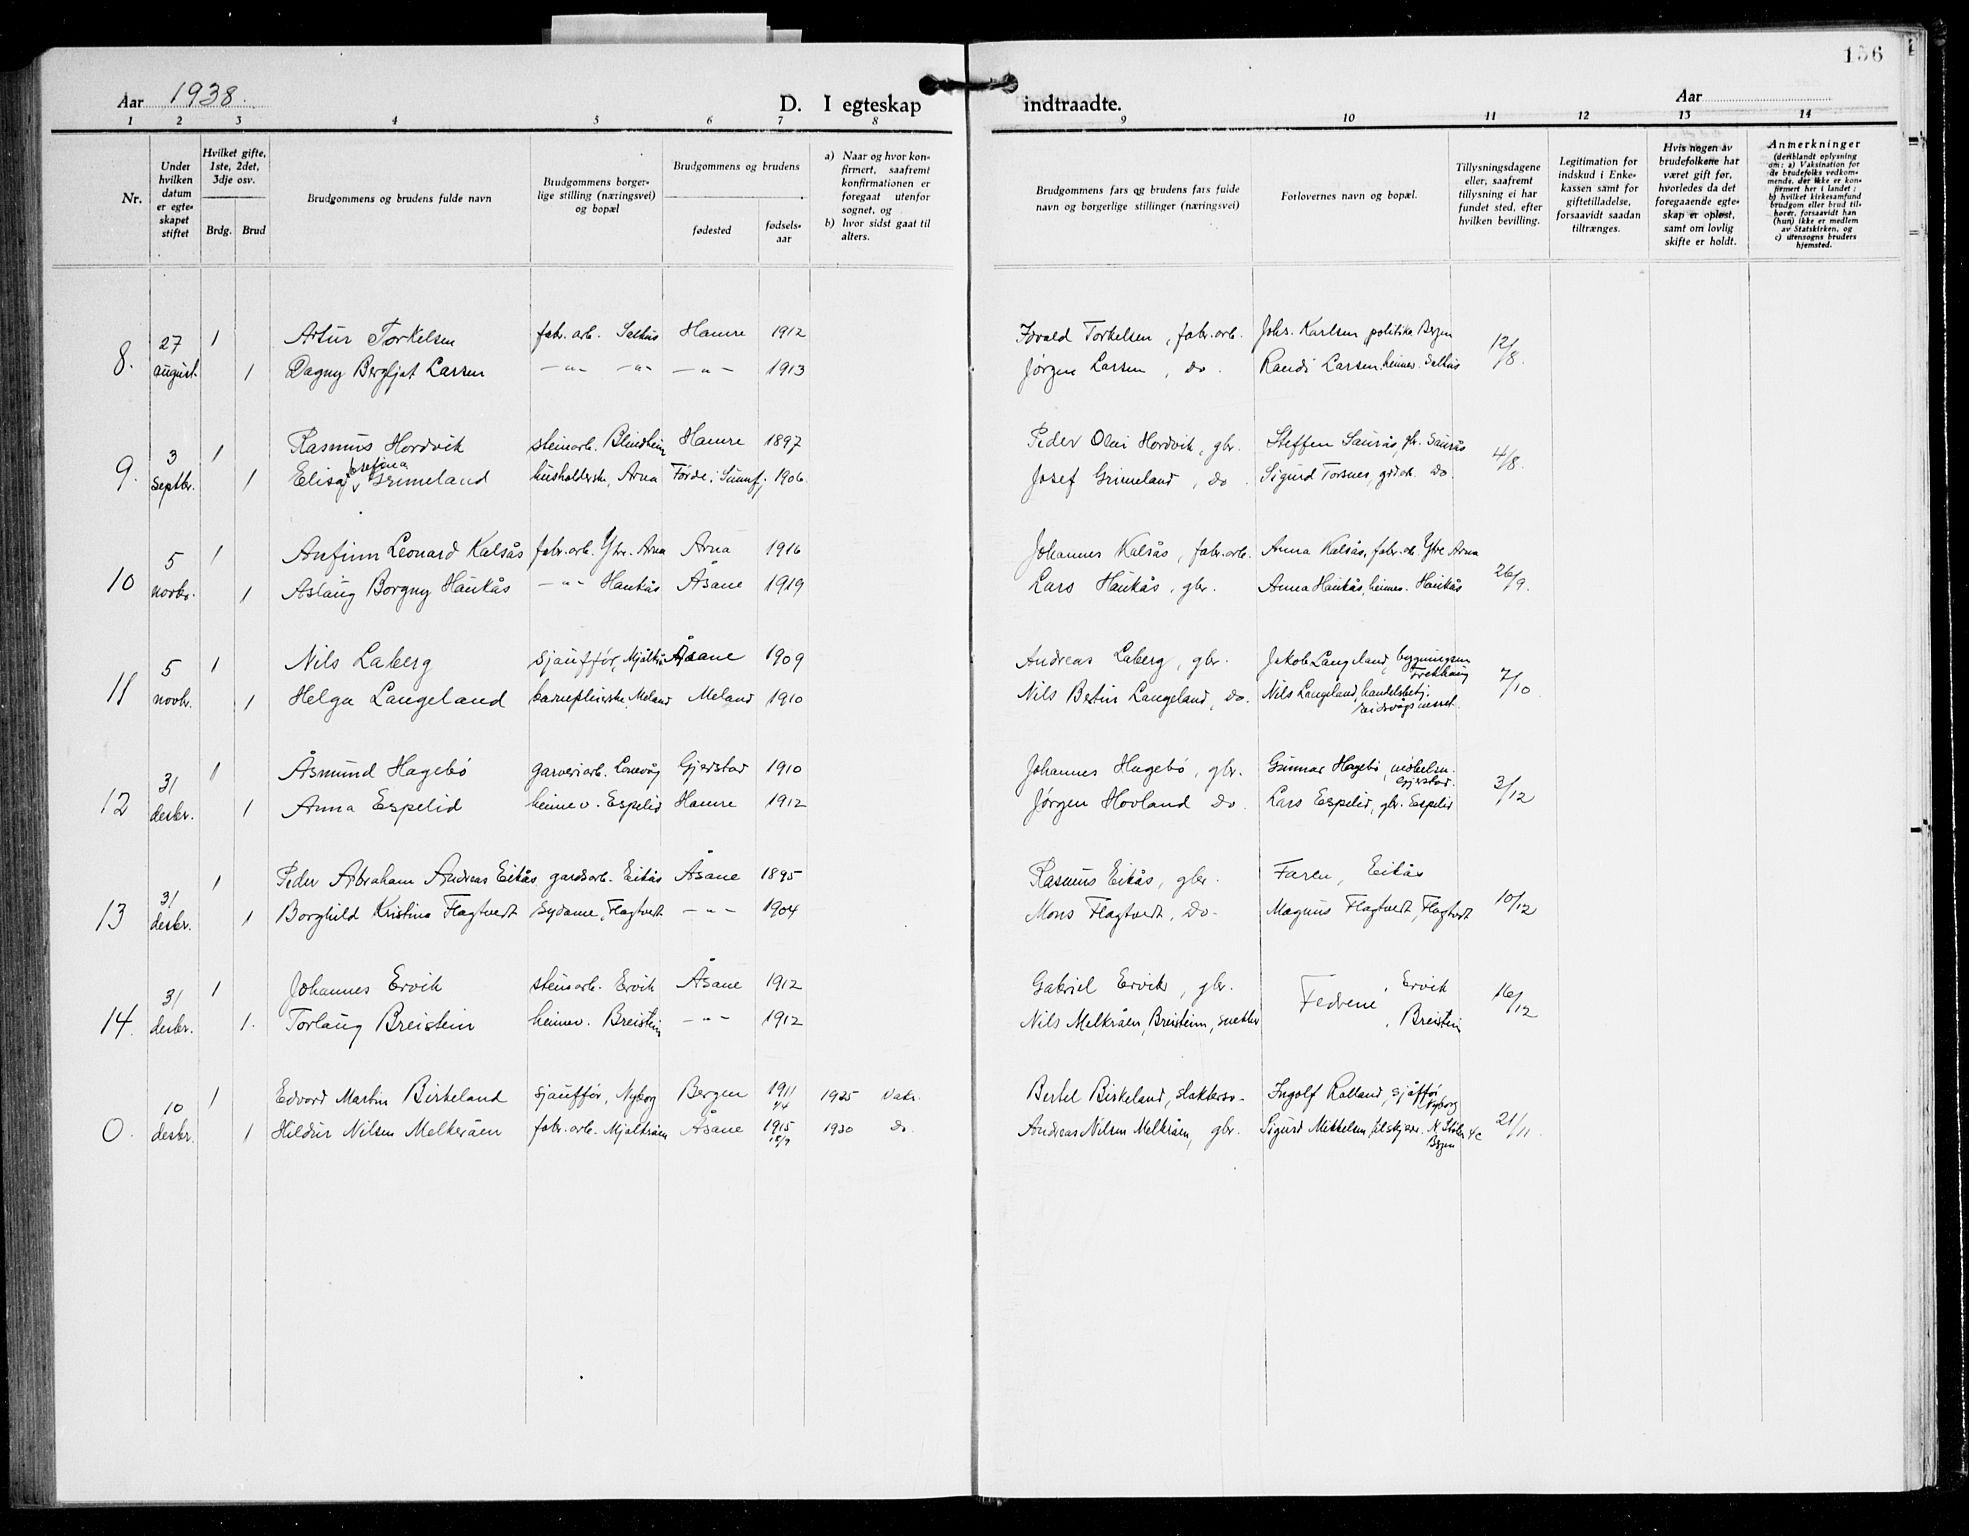 156
Aar 1938.
D. I egteskap indtraadte.
Aar
1 2 3 4 5 6 7 8 9 10 11 12 13 14
Nr.
Under hvilken datum er egte-skapet stiftet
Hvilket gifte, 1ste, 2det, 3dje osv.
Brdg. Brud
Brudgommens og brudens fulde navn
Brudgommens borger-lige stilling (næringsvei) og bopæl
Brudgommens og brudens
fødested
fødsels-aar
a) Naar og hvor kon-firmert, saafremt konfirmationen er foregaat utenfor sognet, og
b) hvor sidst gaat til alters.
Brudgommens fars og brudens fars fulde navn og borgerlige stillinger (næringsvei)
Forlovernes navn og bopæl.
Tillysningsdagene eller, saafremt tillysning ei har fundet sted, efter hvilken bevilling.
Legitimation for indskud i Enke-kassen samt for giftetilladelse, forsaavidt saadan tiltrænges.
Hvis nogen av brudefolkene har været gift før, hvorledes da det foregaaende egte-skap er opløst, samt om lovlig skifte er holdt.
Anmerkninger
(deriblandt oplysning om: a) Vaksination for de brudefolks vedkom-mende, der ikke er kon-firmert her i landet; b) hvilket kirkesamfund brudgom eller brud til-hører, forsaavidt han (hun) ikke er medlem av Statskirken, og c) utensogns bruders hjemsted.
8. 27 august. 1 Artur Torkelsen fabr. arb. Salhus Hamre 1912 Torkelsen, fabr. arb. Johs. Karlsen politibe Bergen 12/8.
1 Dagny Bergljot Larsen —"— —"— —"— 1913 Jørgen Larsen, do. Randi Larsen heimev. Salhus
9. 3 septbr. 1 Rasmus Hordvik steinarb. Blindheim Hamre 1897 Peder Olai Hordvik, gbr. Steffen Saurås, gbr. Saurås 4/8.
1 Elisa Josefina Grimeland husholderske, Arna Førde i Sunnfj. 1906. Josef Grimeland, do. Sigurd Torsnes, do.
10 5 novbr. 1 Anfinn Leonard Kalsås fabr. arb. Ytr. Arna Arna 1916 Johannes Kalsås, fabr. arb. Anna Kalsås, fabr. arb. Ytre Arna 26/9.
1 Aslaug Borgny Haukås —"— Haukås Åsane 1919 Lars Haukås, gbr. Anna Haukås, heimev. Haukås
11 5 novbr. 1 Nils Laberg sjauffør, Mjålkrå Åsane 1909 Andreas Laberg, gbr. Jakob Langeland, bygningsm. 7/10.
1 Helga Langeland barnepleierske Meland Meland 1910 Nils Bertin Langeland, do. Nils Langeland, handelsbetj. Eidsvågsnesset.
12 31 desbr. 1 Åsmund Hagebø garveriarb. Lonevåg Gjerstad 1910 Johannes Hagebø, gbr. Gunnar Hagebø, møbelsn. Gjerstad. 3/12
1 Anna Espelid heimev. Espelid Hamre 1912 Jørgen Hovland do. Lars Espelid, gbr. Espelid
13 31 desbr. 1 Peder Abraham Andreas Eikås gardsarb. Eikås Åsane 1895 Rasmus Eikås, gbr. Faren, Eikås 10/12
1 Borghild Kristina Flagtvedt sydame, Flagtvedt —"— 1904 Mons Flagtvedt, do. Magnus Flagtvedt, Flagtvedt
14. 31 desbr. 1 Johannes Ervik steinarb. Ervik Åsane 1912 Gabriel Ervik, gbr. Fedrene, Ervik 16/12
1. Torlaug Breistein heimev. Breistein —"— 1912 Nils Melkråen, Breistein, snekker , Breistein
0. 10 desbr. 1 Edvard Martin Birkeland sjauffør, Nyborg Bergen 1911 1/4 1925 Vaks. Bertel Birkeland, slaktersv. Ingolf Rolland, sjåffør Nyborg 21/11.
1 Hildur Nilsen Melkeråen fabr. arb. Mjølkråen Åsane 1915 18/9 1930 do. Andreas Nilsen Melkråen, gbr. Sigurd Mikkelsen, Bergen